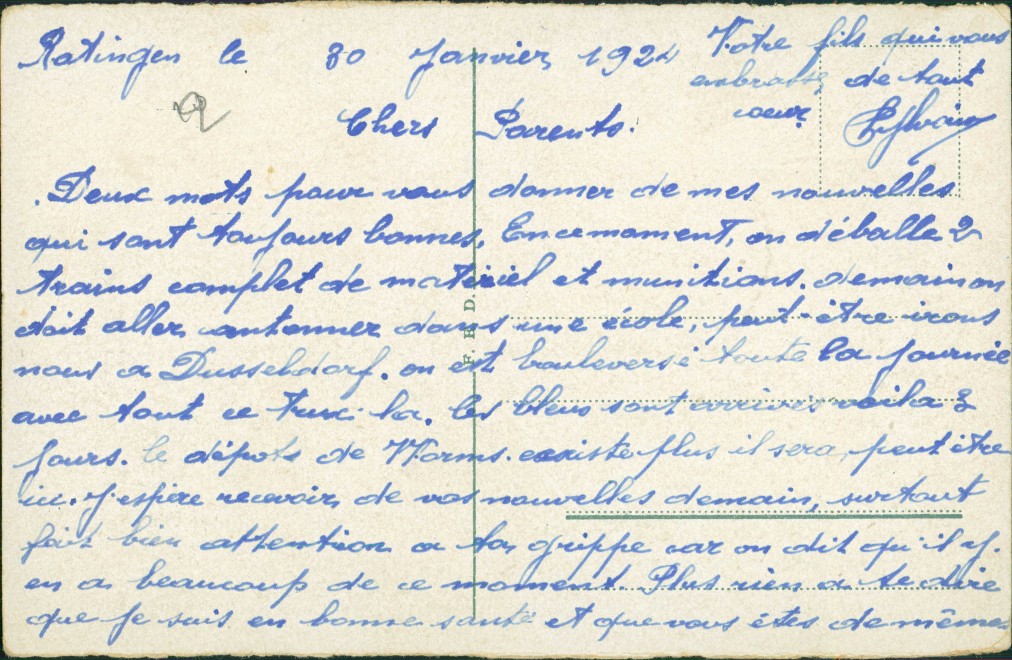 Ratingen le 30 Janvier 1924
Chers Parents.
.Deux mots pour vous donner de mes nouvelles
qui sont toujours bonnes. En ce moment, on déballe 2
trains complet de matériel et munitions. demain on
doit aller cantonner dans une école, peut-être irons
nous a Dusseldorf. on est bouleversé toute la journée
avec tout ce truc la. les bleus sont arrivés voila 3
jours. le dépots de Worms existe plus il sera, peut être
ici. J'espère recevoir de vos nouvelles demain, surtout
fait bien attention a ta grippe car on dit qu'il y.
en a beaucoup de ce moment. Plus rien a te dire
que je suis en bonne santé et que vous êtes de même
Votre fils qui vous
embrasse de tout
coeur
Sylvain
F. E. D.